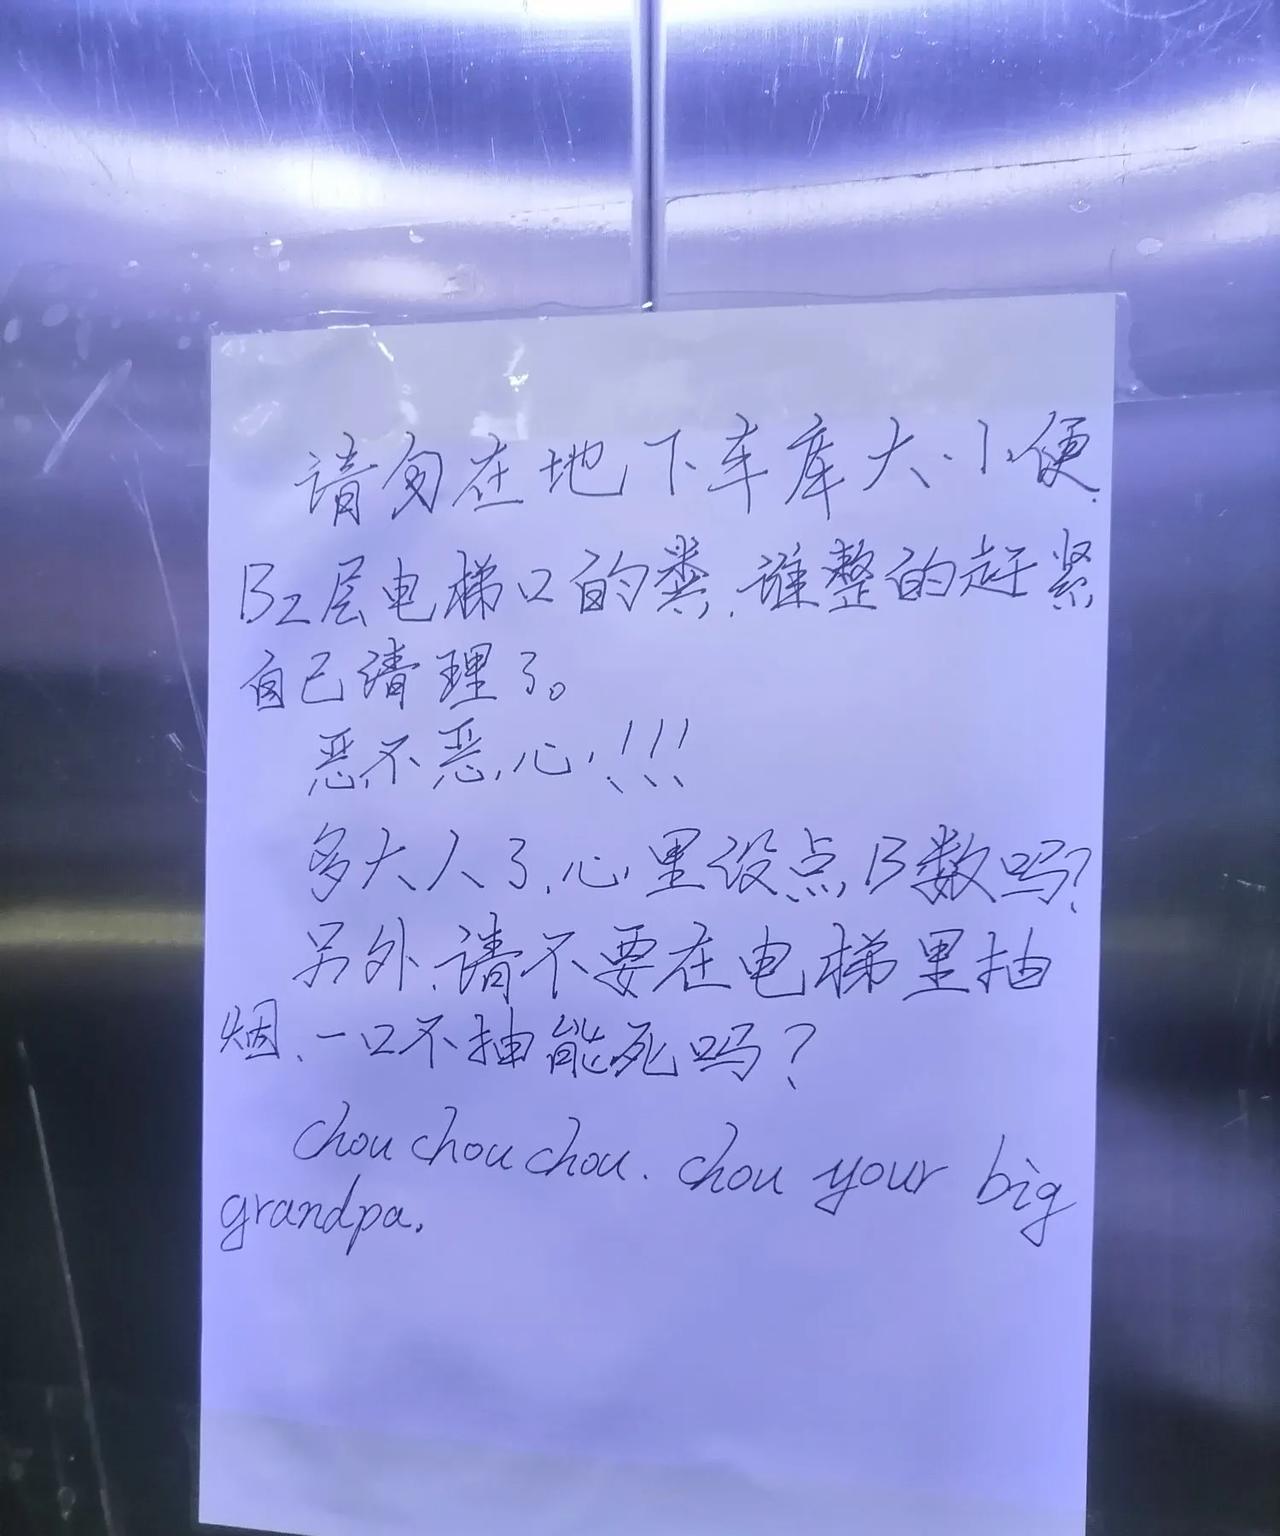 请勿在地下车库大小便.
B2层电梯口的粪,谁整的赶紧
自己请理了。
恶不恶心!!!
多大人了,心里没点B数吗?
另外,请不要在电梯里抽
烟、一口不抽能死吗?
chou chou chou. chou your big
grandpa.